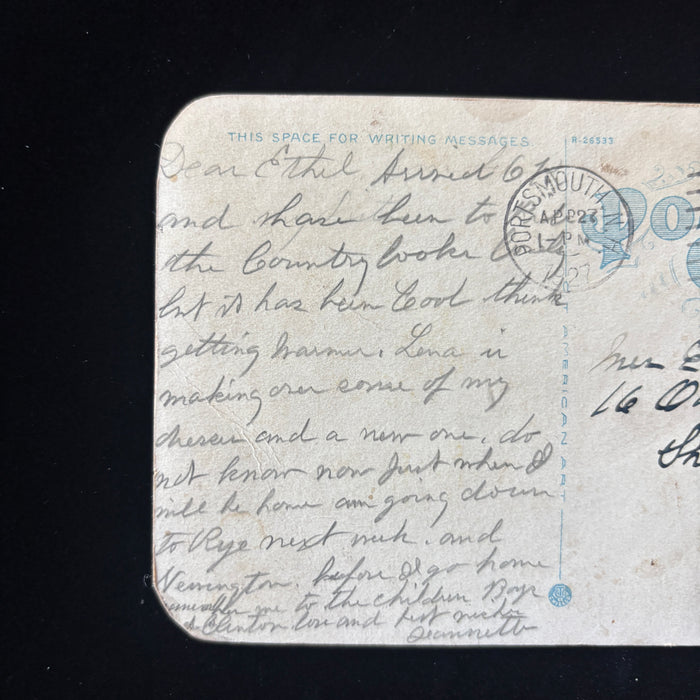 THIS SPACE FOR WRITING MESSAGES
R-26533
Dear Ethel Arrived 6
and have been to
the Country looks
but it has been Cool think
getting warmer. Lena is
making over some of my
dresses and a new one. do
not know now just when I
will be home am going down
to Rye next week. and
Newington. before I go home
remember me to the children Boys
& Clinton love and best wishes
Jeannette
PORTSMOUTH, N.H.
APR 27
12 PM
1927
PO
AMERICAN ART
Mrs E
16 O
Sh